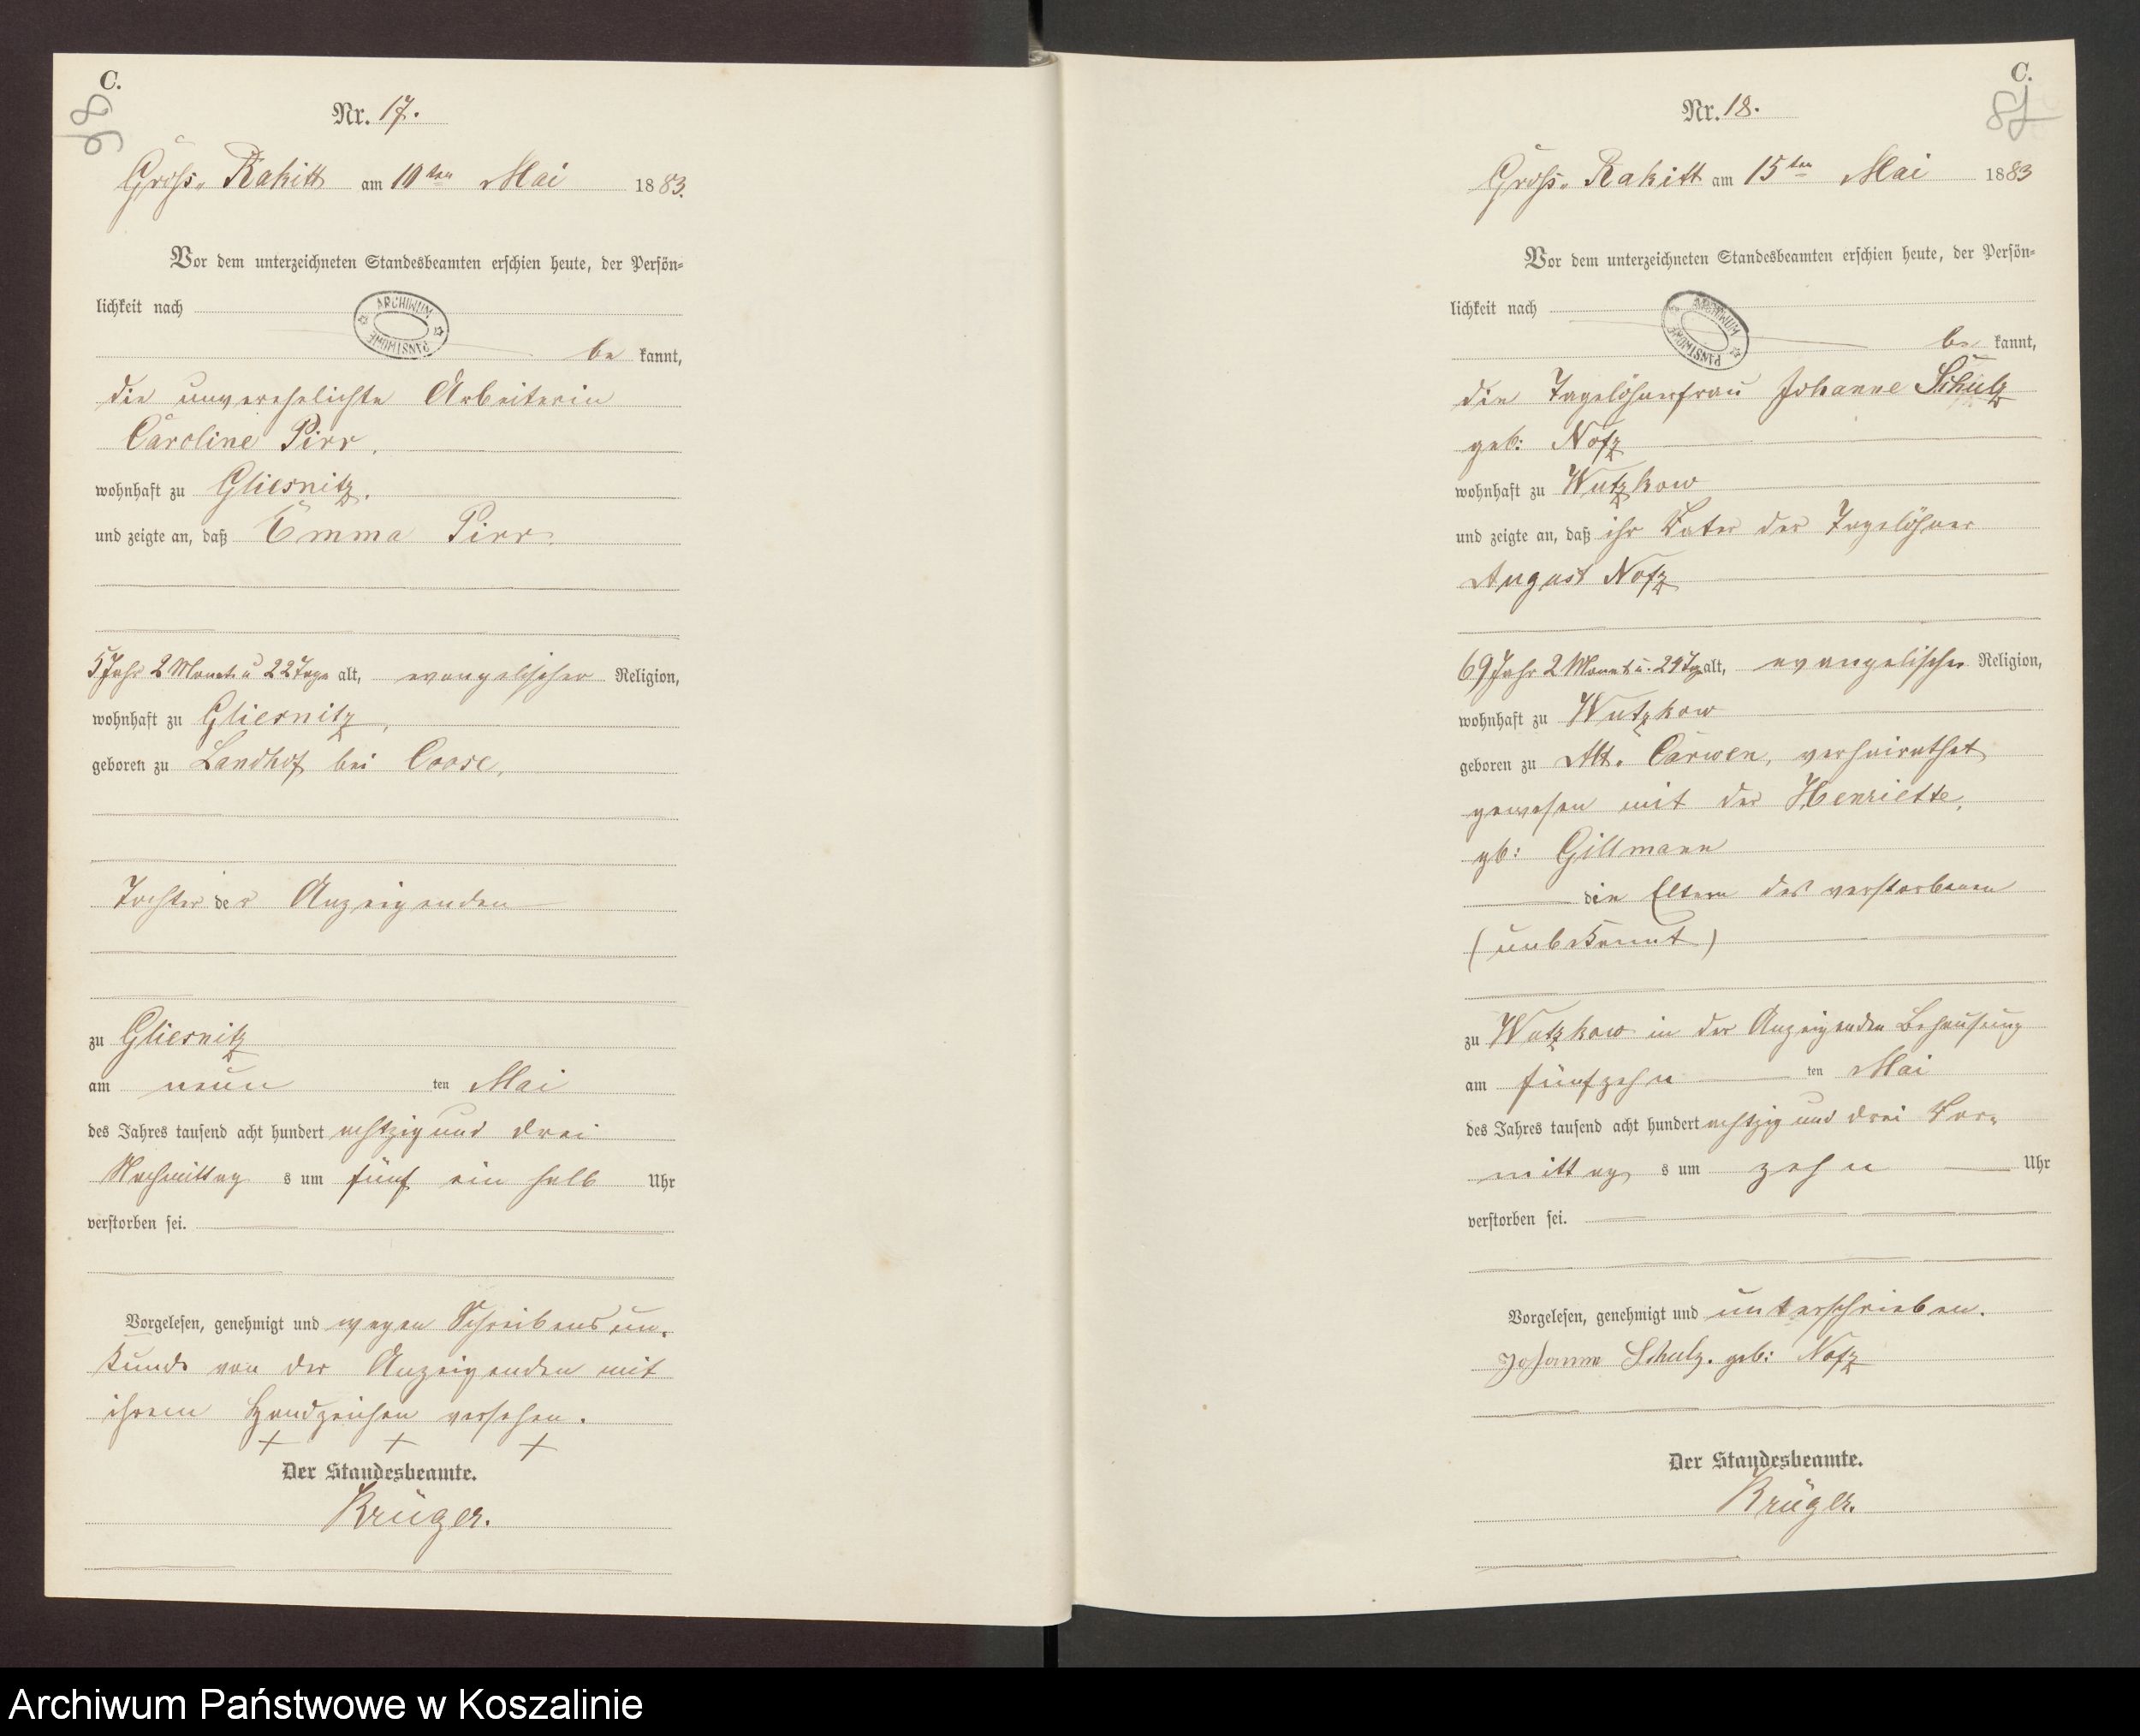 C.
Nr. 17.
Gross. Rakitt am 10ten Mai 1883.
Vor dem unterzeichneten Standesbeamten erschien heute, der Persön=
lichkeit nach
ARCHIWUM PAŃSTWOWE
be kannt,
die unverehelichte Arbeiterin
Caroline Pirr,
wohnhaft zu Gliesnitz.
und zeigte an, daß Emma Pirr.
5 Jahr 2 Monat u 22 Tage alt, evangelischer Religion,
wohnhaft zu Gliesnitz,
geboren zu Landhof bei Coose,
Tochter der Anzeigenden
zu Gliesnitz
am neun ten Mai
des Jahres tausend acht hundert achtzig und drei
Nachmittag s um fünf ein halb Uhr
verstorben sei.
Vorgelesen, genehmigt und wegen Schreibensun.
kunde von der Anzeigenden mit
ihrem Handzeichen versehen.
+ + +
Der Standesbeamte.
Krüger.
C.
81
Nr. 18.
Gross. Rakitt am 15ten Mai 1883
Vor dem unterzeichneten Standesbeamten erschien heute, der Persön=
lichkeit nach
ARCHIWUM PAŃSTWOWE
be kannt,
die Tagelöhnerfrau Johanne Schulz
geb: Notz
wohnhaft zu Wutzkow
und zeigte an, daß ihr Vater der Tagelöhner
August Notz
69 Jahr 2 Monat u. 29 Tg alt, evangelischer Religion,
wohnhaft zu Wutzkow
geboren zu Alt. Carwen, verheirathet
gewesen mit der Henriette,
gb: Gillmann
die Eltern des verstorbenen
(unbekannt)
zu Wutzkow in der Anzeigenden Behausung
am fünfzehn ten Mai
des Jahres tausend acht hundert achtzig und drei Vor=
mittag s um zehn Uhr
verstorben sei.
Vorgelesen, genehmigt und unterschrieben.
Johanne Schulz. geb: Notz
Der Standesbeamte.
Krüger.
Archiwum Państwowe w Koszalinie